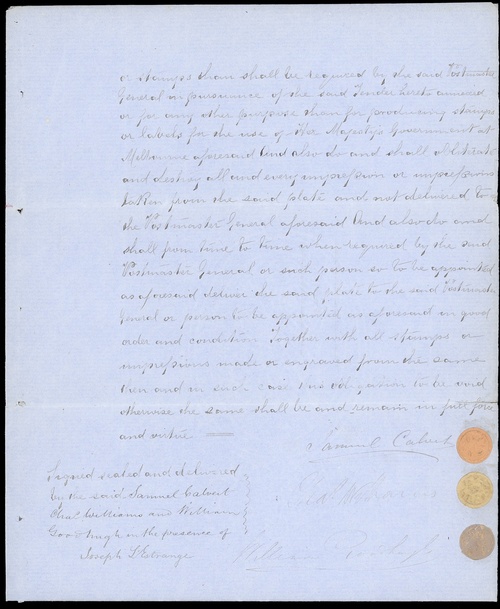 or stamps than shall be required by the said Postmaster
General in pursuance of the said Tender hereto annexed
or for any other purpose than for producing stamps
or labels for the use of Her Majesty's Government at
Melbourne aforesaid And also do and shall obliterate
and destroy all and every impression or impressions
taken from the said plate and not delivered to
the Postmaster General aforesaid And also do and
shall from time to time when required by the said
Postmaster General or such person so to be appointed
as aforesaid deliver the said plate to the said Postmaster
General or person to be appointed as aforesaid in good
order and condition Together with all stamps or
impressions made or engraved from the same
then and in such case this obligation to be void
otherwise the same shall be and remain in full force
and virtue
Samuel Calvert
Signed sealed and delivered
by the said Samuel Calvert
Chas Williams and William
Goodhugh in the presence of
Joseph L'Estrange
Chas Williams
William Goodhugh